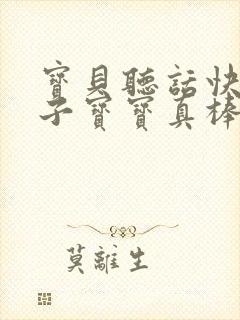 寶貝聽話快
子寶寶真棒
莫離生